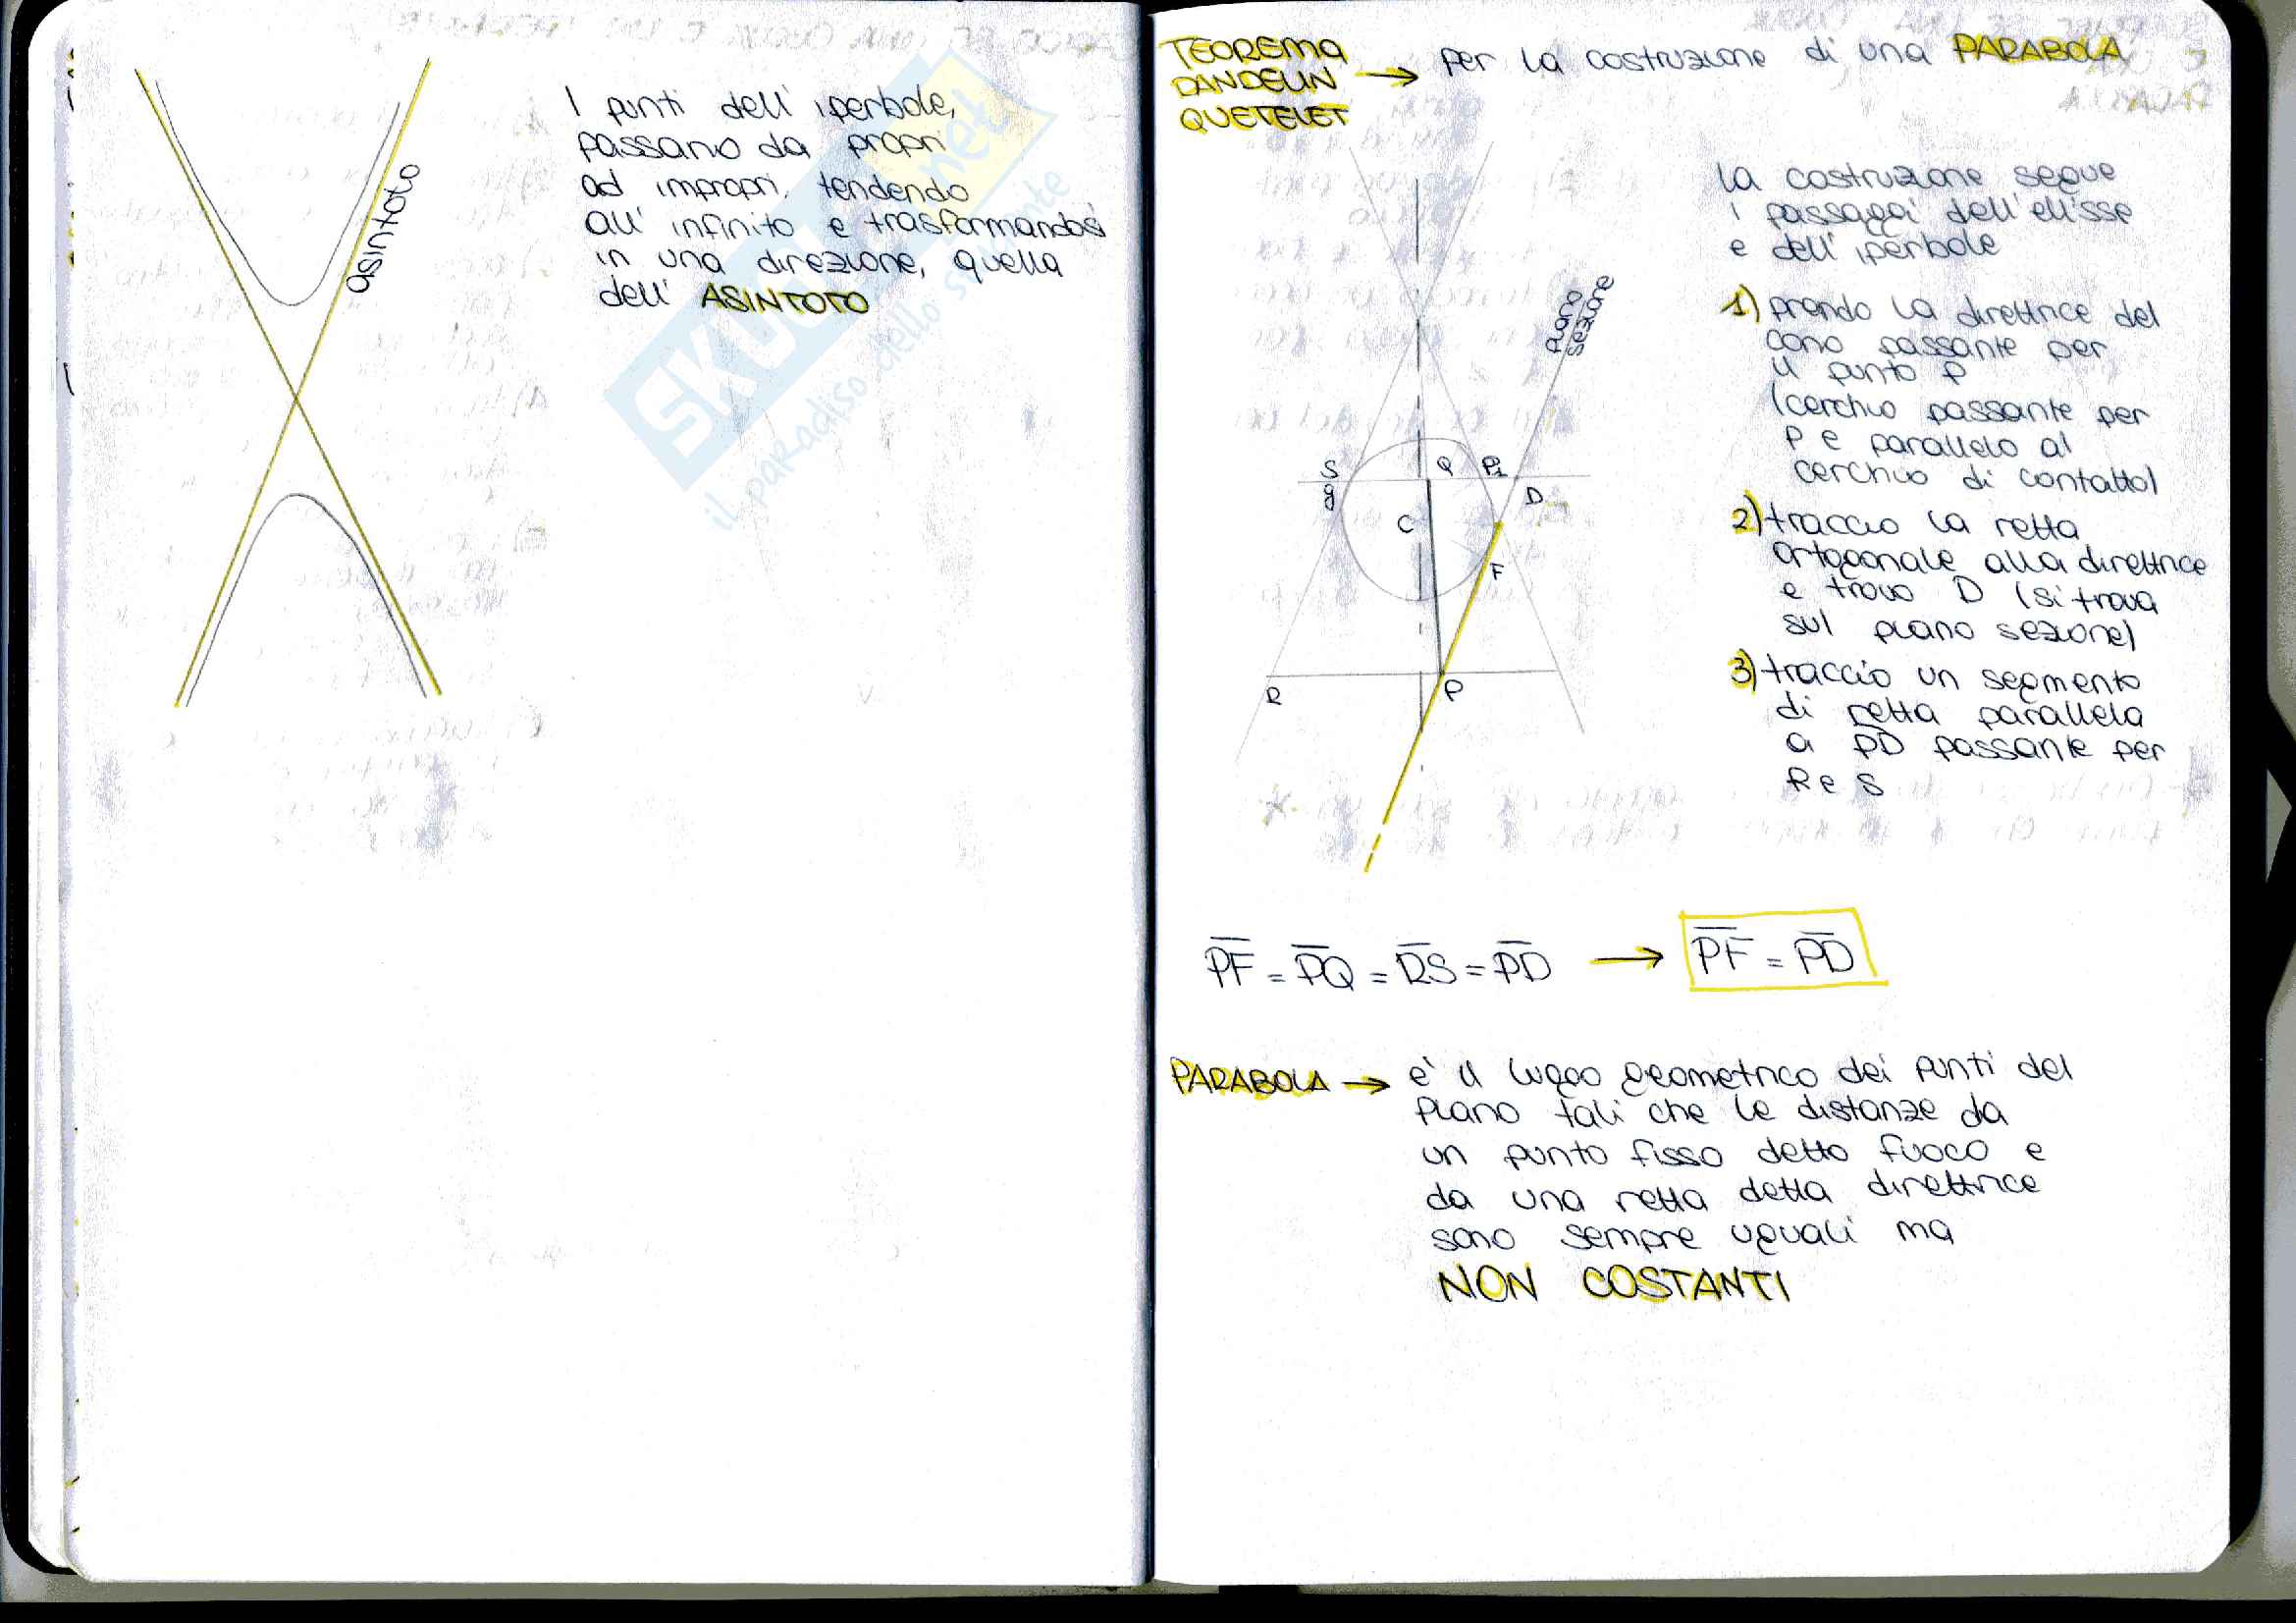 I punti dell' iperbole,
passano da propri
ad impropri, tendendo
all' infinito e trasformandosi
in una direzione, quella
dell' ASINTOTO
asintoto
SKUOLA.net
il paradiso dello studente
TEOREMA
DANDELIN
QUETELET
→ per la costruzione di una PARABOLA
la costruzione segue
i passaggi dell'ellisse
e dell' iperbole
1) prendo la direttrice del
cono passante per
il punto P
(cerchio passante per
P e parallelo al
cerchio di contatto)
2) traccio la retta
ortogonale alla direttrice
e trovo D (si trova
sul piano sezione)
3) traccio un segmento
di retta parallela
a PD passante per
R e S
piano
sezione
S
Q
P₁
D
g
C
F
R
P
PF = PQ = RS = PD → PF = PD
PARABOLA → e' il luogo geometrico dei punti del
piano tali che le distanze da
un punto fisso detto fuoco e
da una retta detta direttrice
sono sempre uguali ma
NON COSTANTI